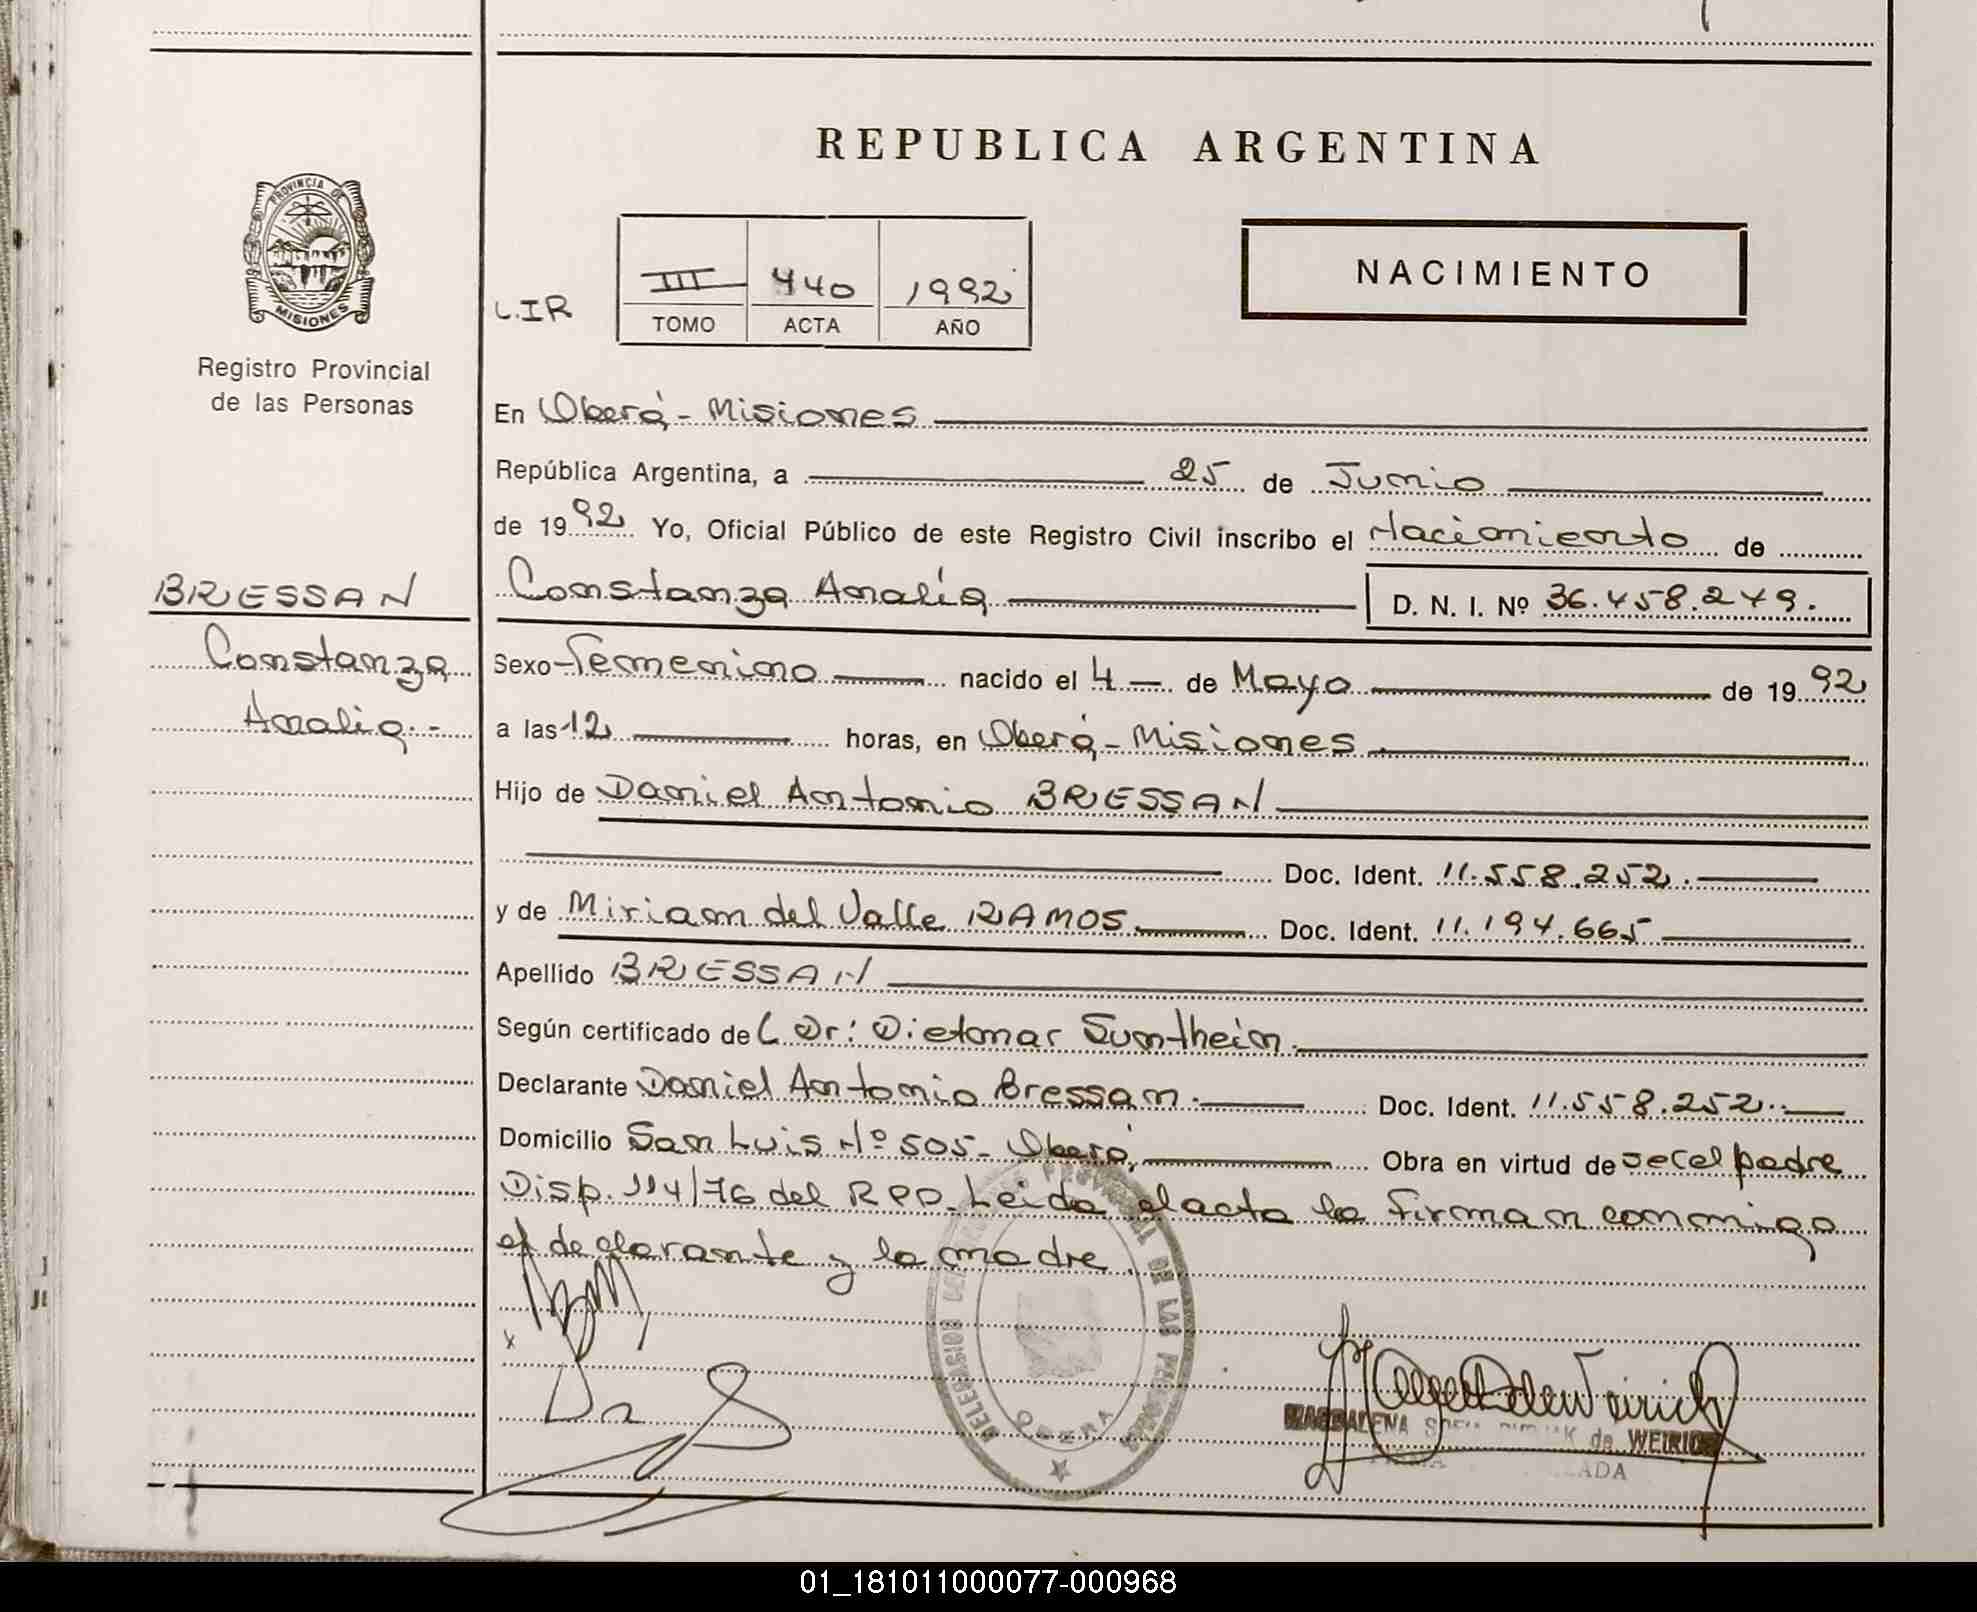 REPUBLICA ARGENTINA
PROVINCIA DE
MISIONES
Registro Provincial
de las Personas
L.IR
III 440 1992
TOMO ACTA AÑO
NACIMIENTO
En Oberá - Misiones
República Argentina, a 25 de Junio
de 1992 Yo, Oficial Público de este Registro Civil inscribo el Nacimiento de
BRESSAN
Constanza
Analia.-
Constanza Analia D. N. I. Nº 36.458.249.
Sexo Femenino nacido el 4 de Mayo de 1992
a las 12 horas, en Oberá - Misiones
Hijo de Daniel Antonio BRESSAN
Doc. Ident. 11.558.252.
y de Miriam del Valle RAMOS Doc. Ident. 11.194.665
Apellido BRESSAN
Según certificado de Dr: Dietmar Suntheim.
Declarante Daniel Antonio Bressan. Doc. Ident. 11.558.252.
Domicilio San Luis Nº 505 - Oberá, Obra en virtud de ser el padre
Disp. 114/76 del RPP. Leida el acta la firman conmigo
el declarante y la madre
DE LAS
OBERA
MAGDALENA de WEIRICH
01_181011000077-000968